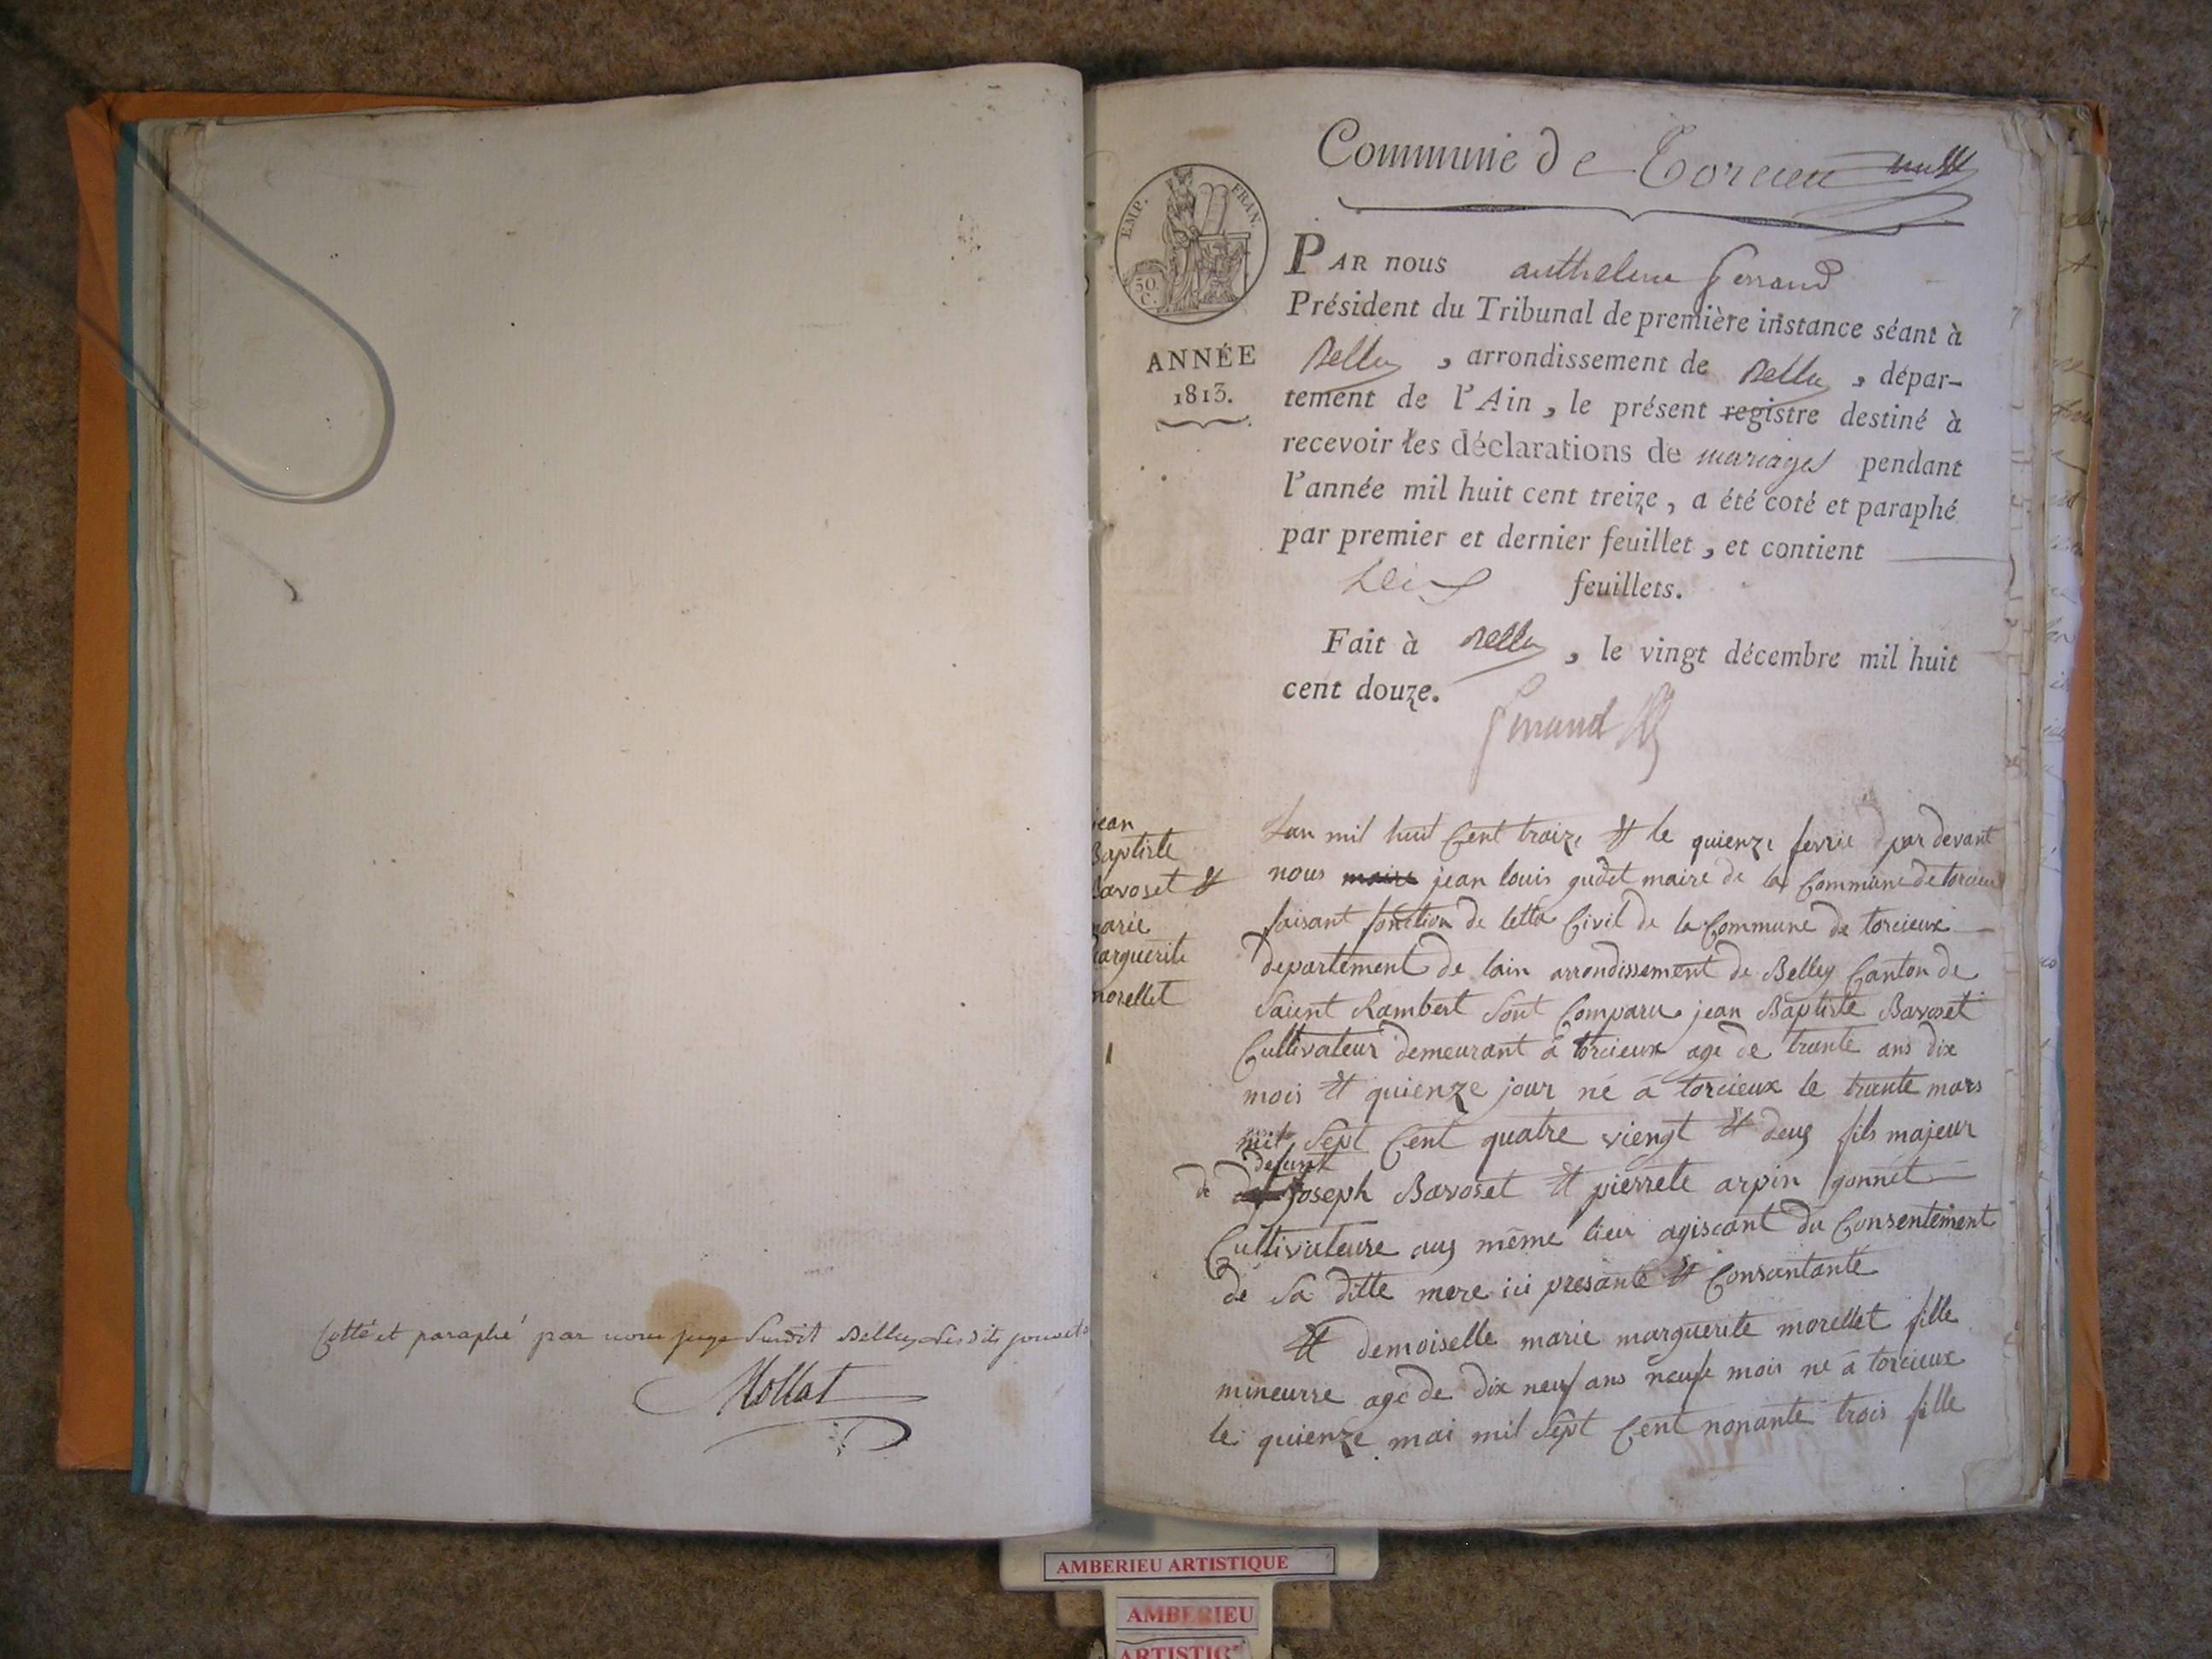 Cotté et paraphé par nous juge Susdit Belley Lesdits jour et
Mollat
Commune de Torcieu
EMP. FRAN.
30
C.
ANNÉE
1813.
PAR nous anthelme ferrand
Président du Tribunal de première instance séant à
Belley, arrondissement de Belley, dépar-
tement de l'Ain, le présent registre destiné à
recevoir les déclarations de mariages pendant
l'année mil huit cent treize, a été coté et paraphé
par premier et dernier feuillet, et contient
Six feuillets.
Fait à Belley, le vingt décembre mil huit
cent douze.
jean
Baptiste
Bavoset &
marie
marguerite
morellet
1
Lan mil huit Cent traize & le quienze fevrie par devant
nous maire jean louis gudet maire de la Commune de torcieu
faisant fonction de letta Civil de la Commune de torcieux
departement de lain arrondissement de Belley Canton de
Saint Rambert Sont Comparu jean Baptiste Bavoset
Cultivateur demeurant a torcieux age de trante ans dix
mois & quienze jour né a torcieux le trante mars
mil Sept Cent quatre viengt & deux fils majeur
defunt
de joseph Bavoset & pierrete arpin gonnet
Cultivateure aux même lieu agiscant du Consentement
de Sa ditte mere ici presante & Consantante
& demoiselle marie marguerite morellet fille
mineurre agé de dix neuf ans neufe mois né a torcieux
le quienze mai mil Sept Cent nonante trois fille
AMBERIEU ARTISTIQUE
AMBERIEU
ARTISTIQ